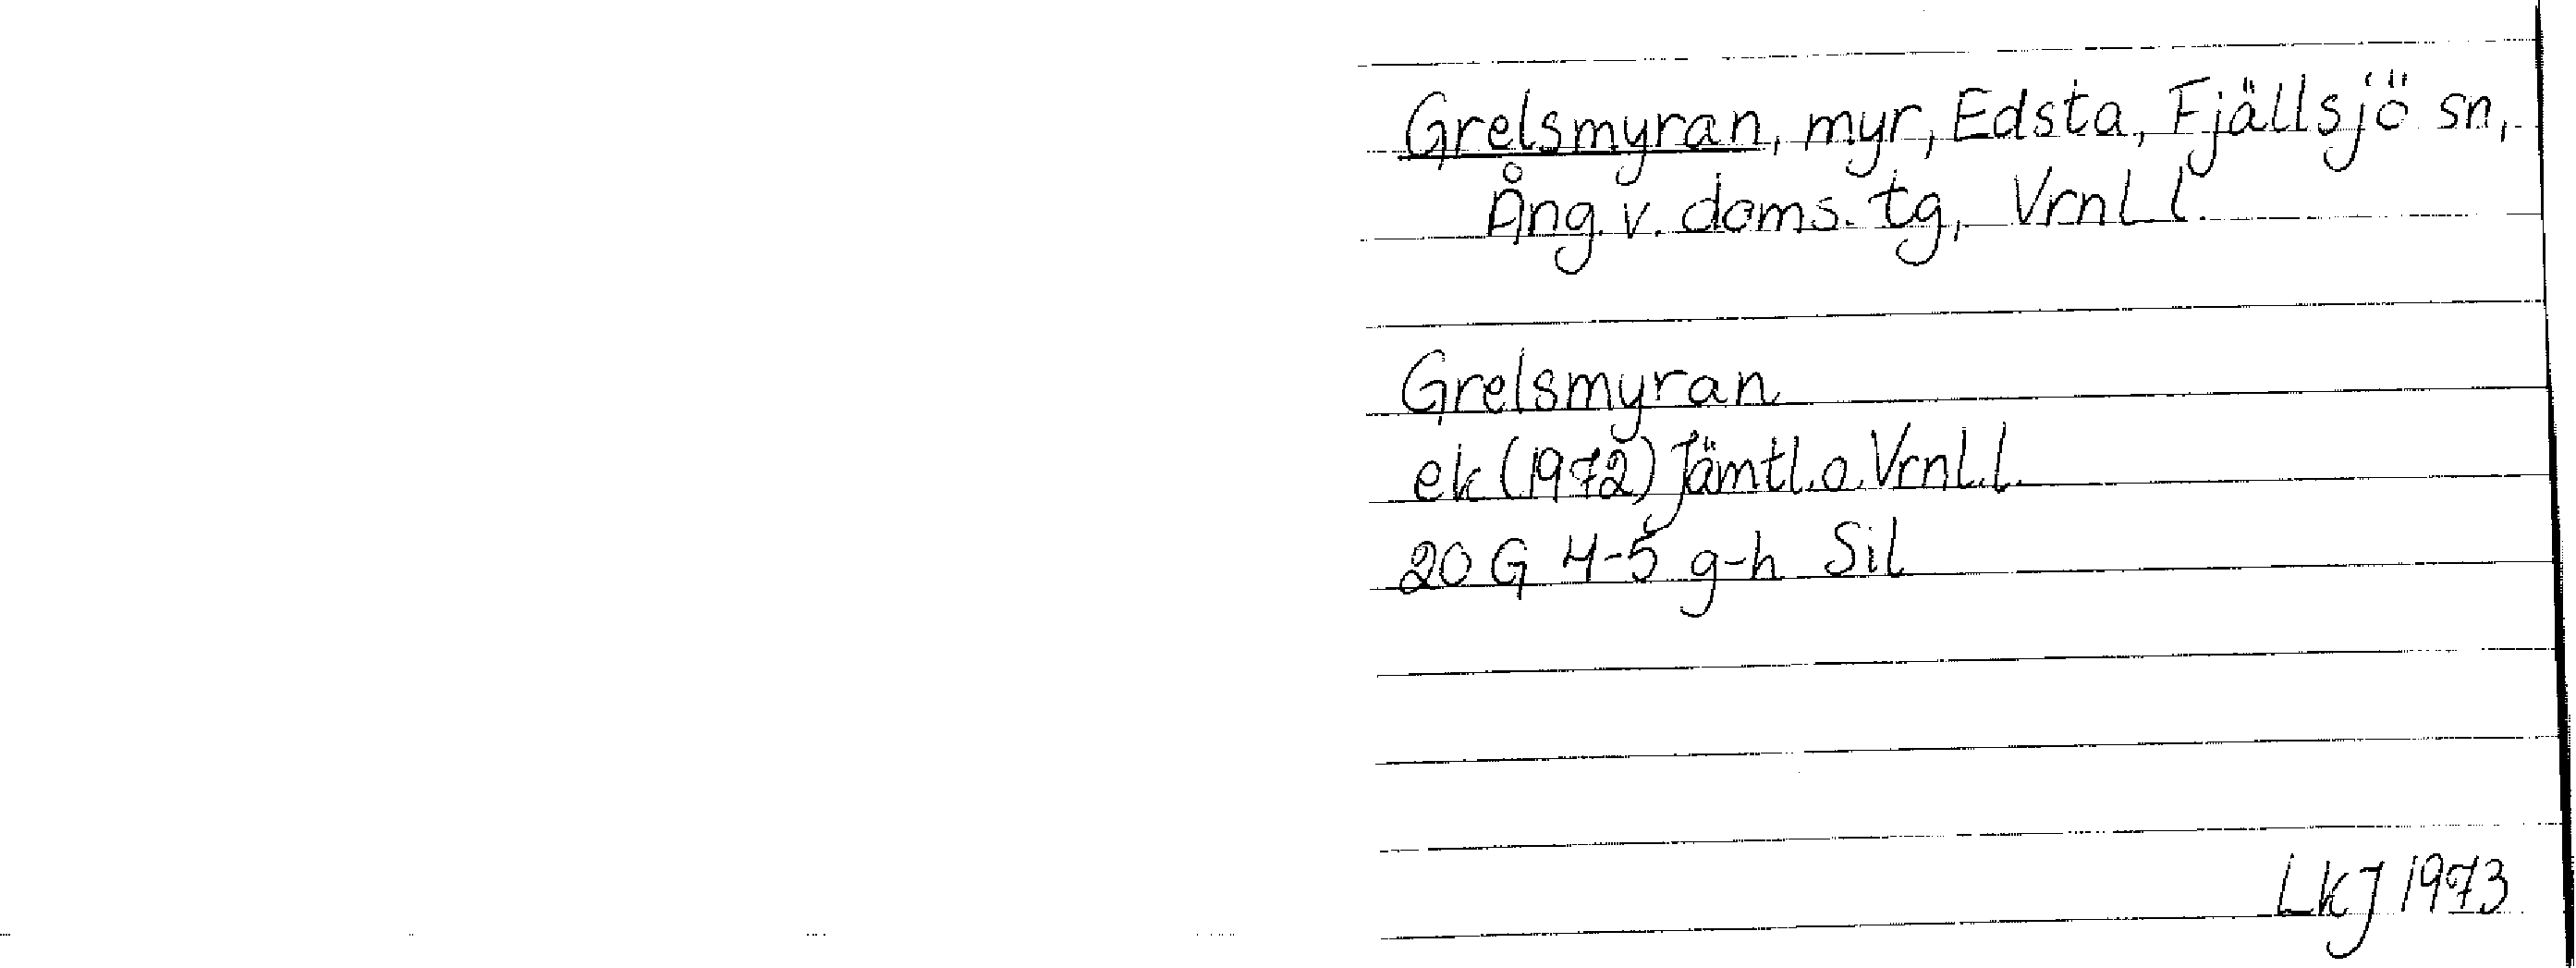 Grelsmyran, myr, Edsta, Fjällsjö sn,
Ång. v. doms. tg, Vrnl l.
Grelsmyran
ek (1972) Jämtl. o. Vrnl. l.
20 G 4-5 g-h Sil
LKJ 1973